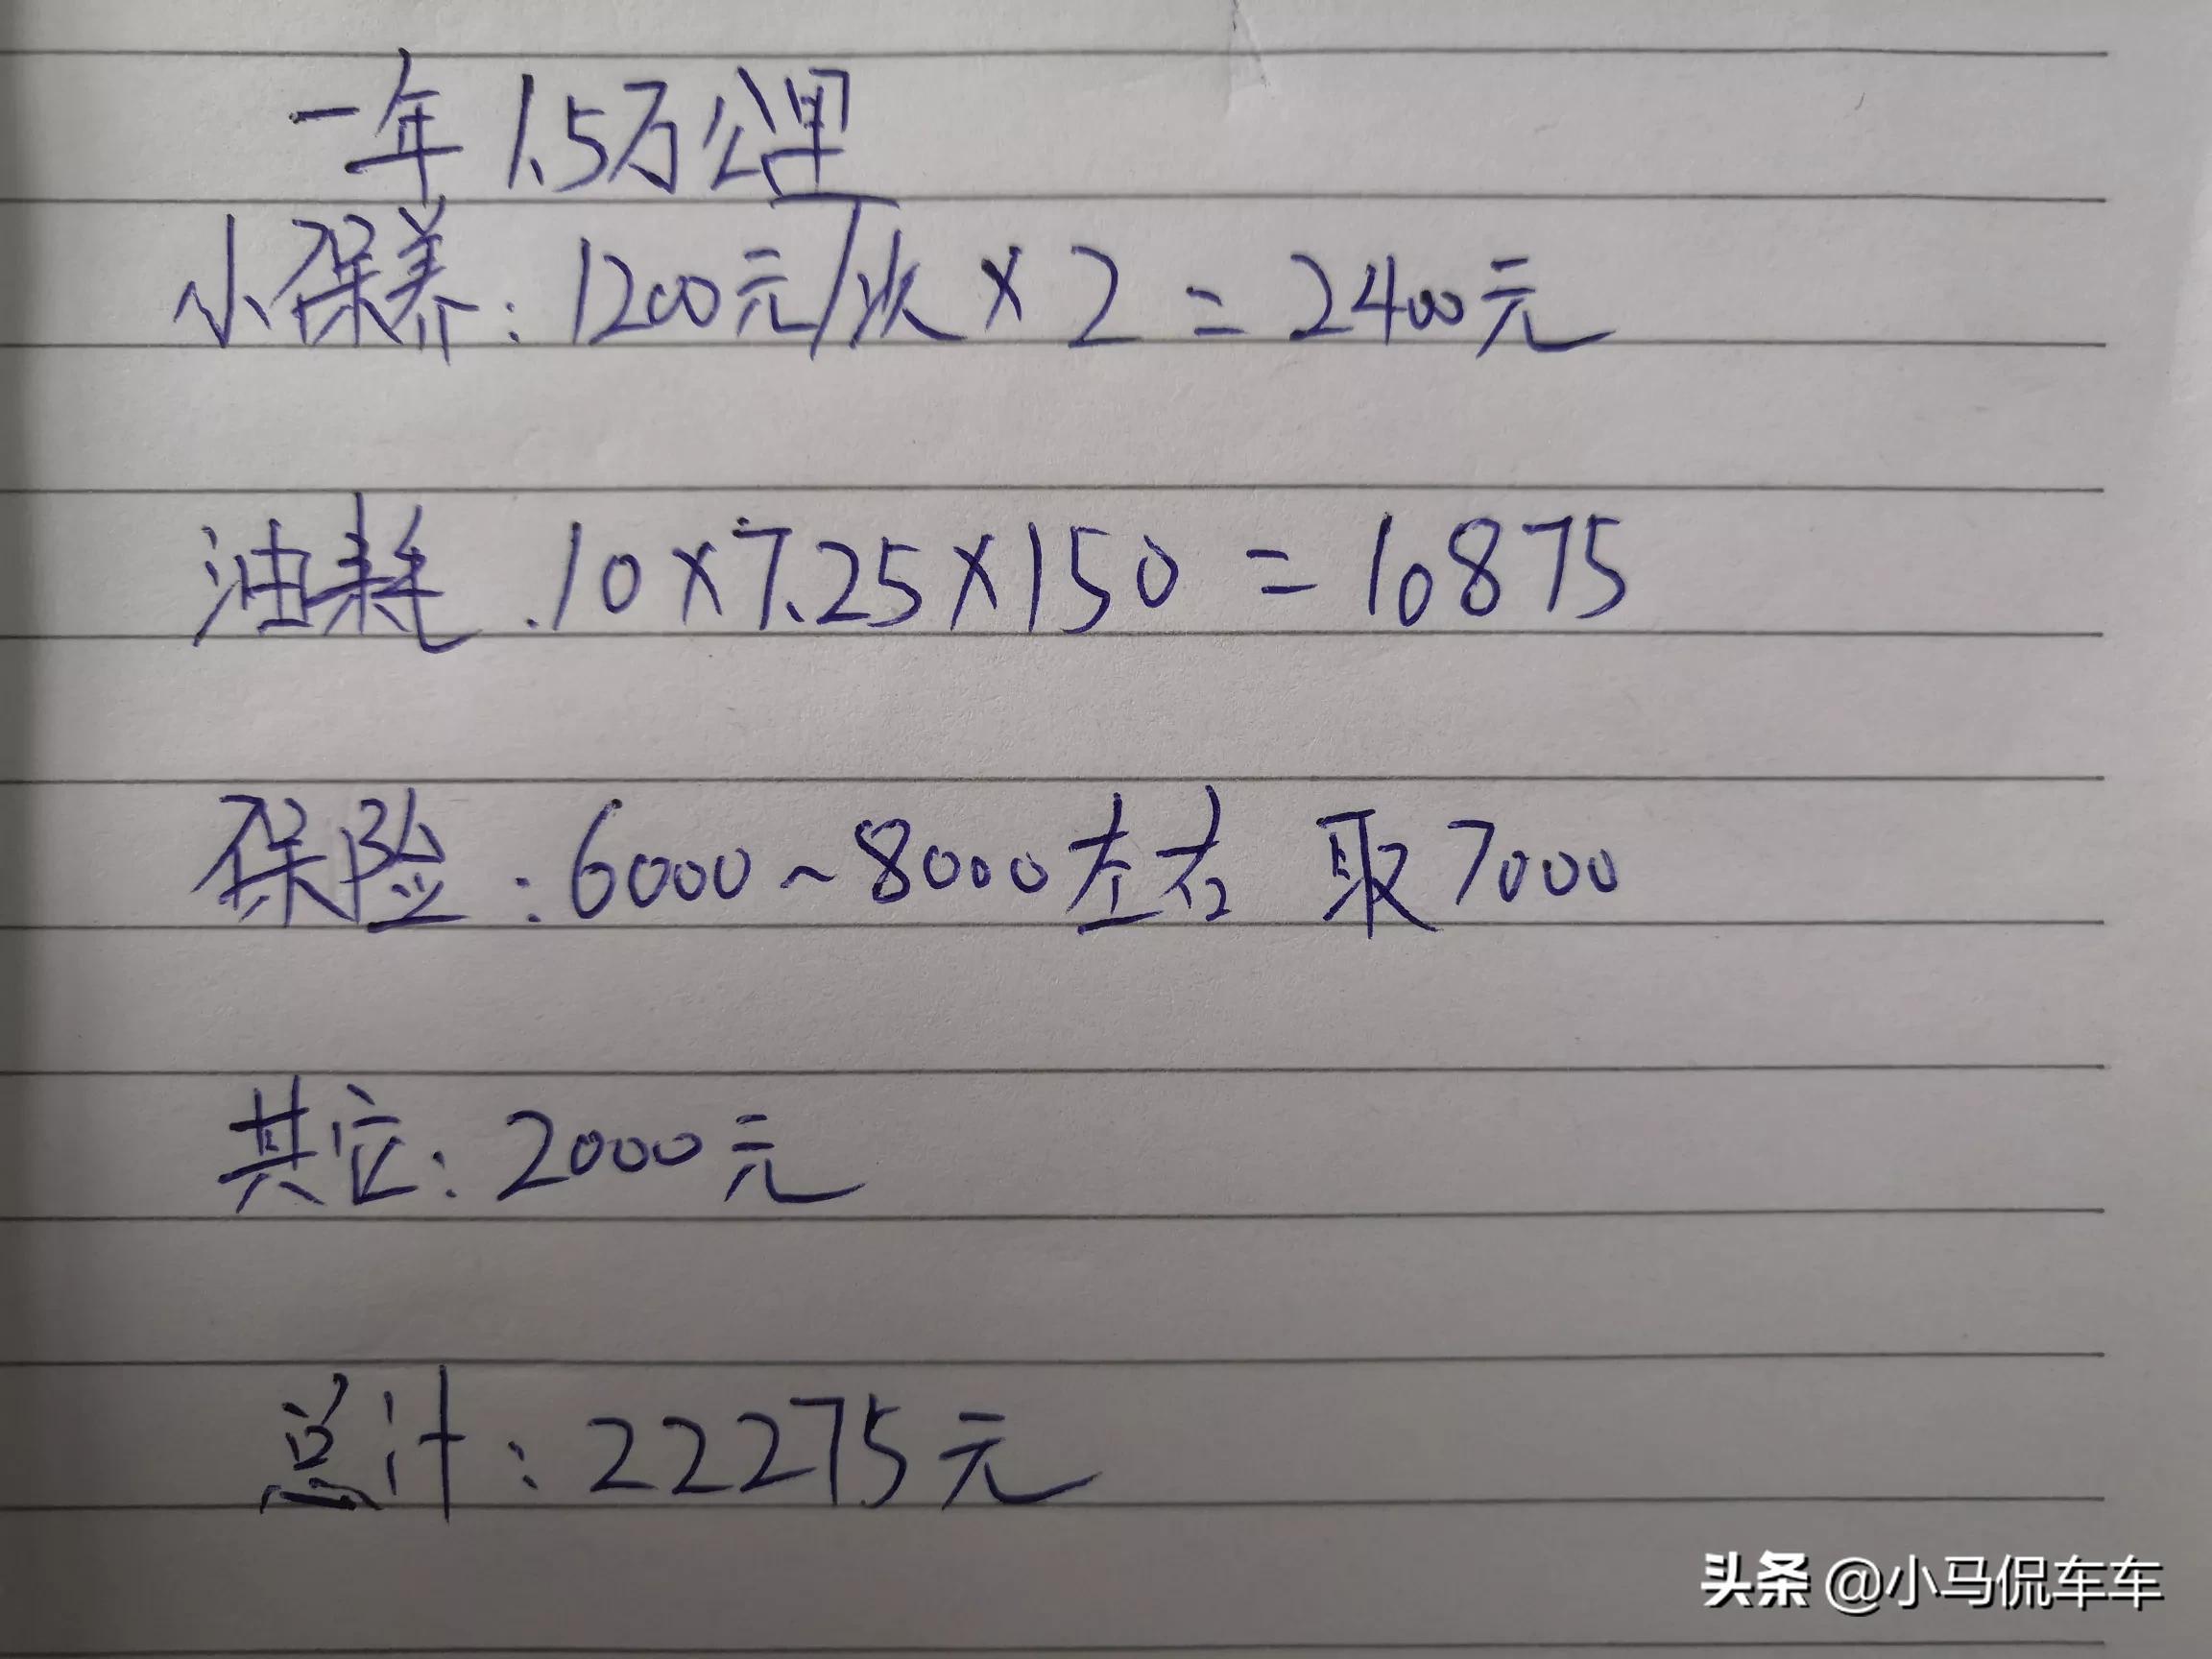 一年1.5万公里
小保养：1200元/次×2=2400元
油耗.10×7.25×150=10875
保险：6000~8000左右 取7000
其它：2000元
总计：22275元
头条 @小马侃车车